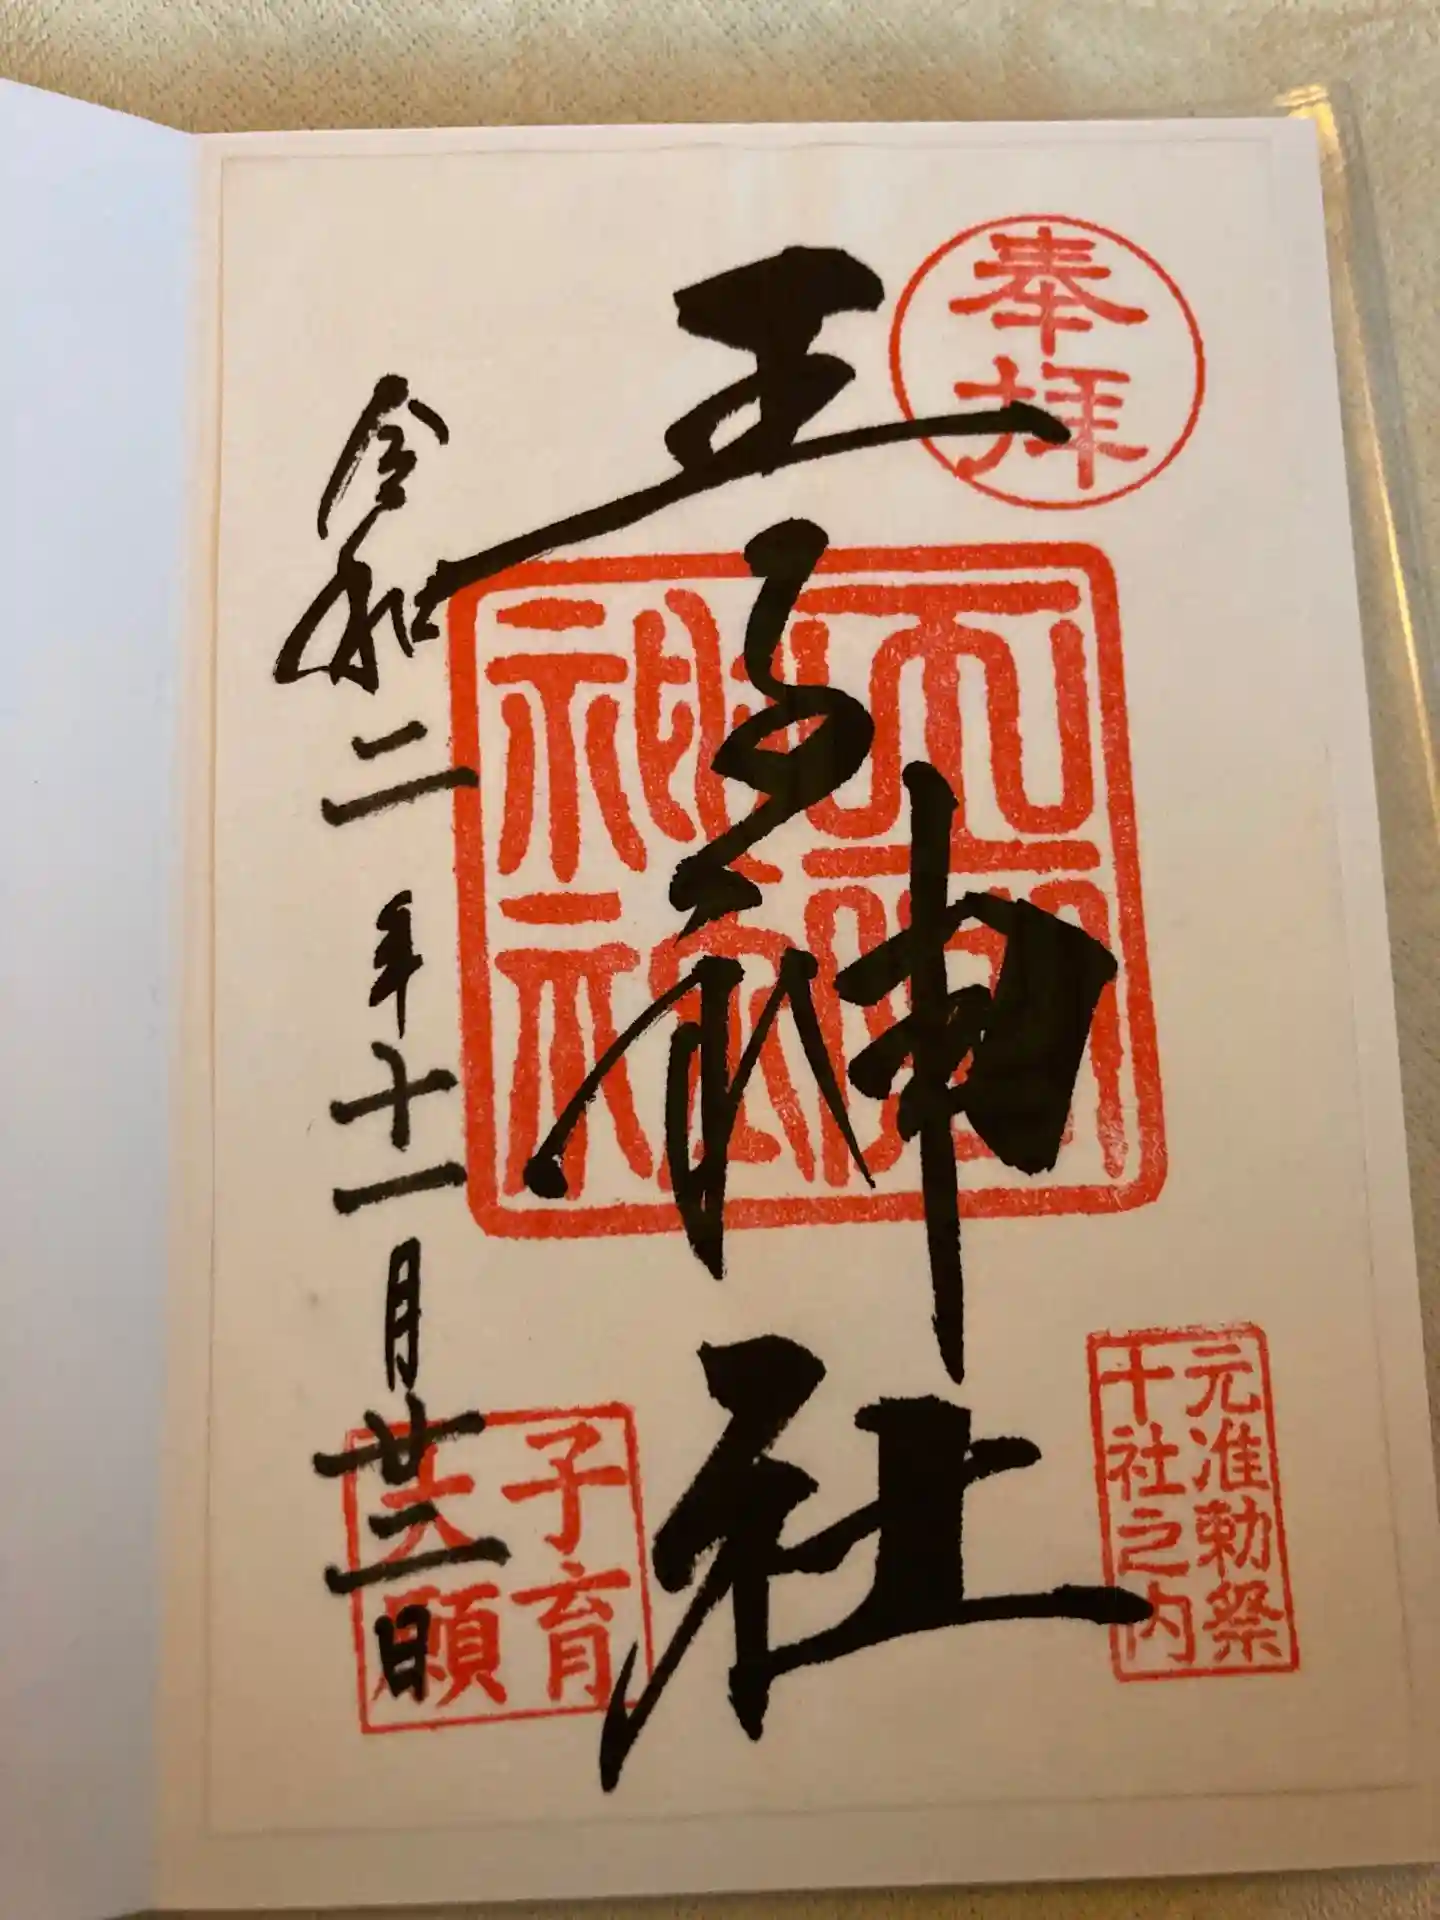 奉拝
元准勅祭
十社之内
王子神社
子育
大願
令和二年十一月廿二日